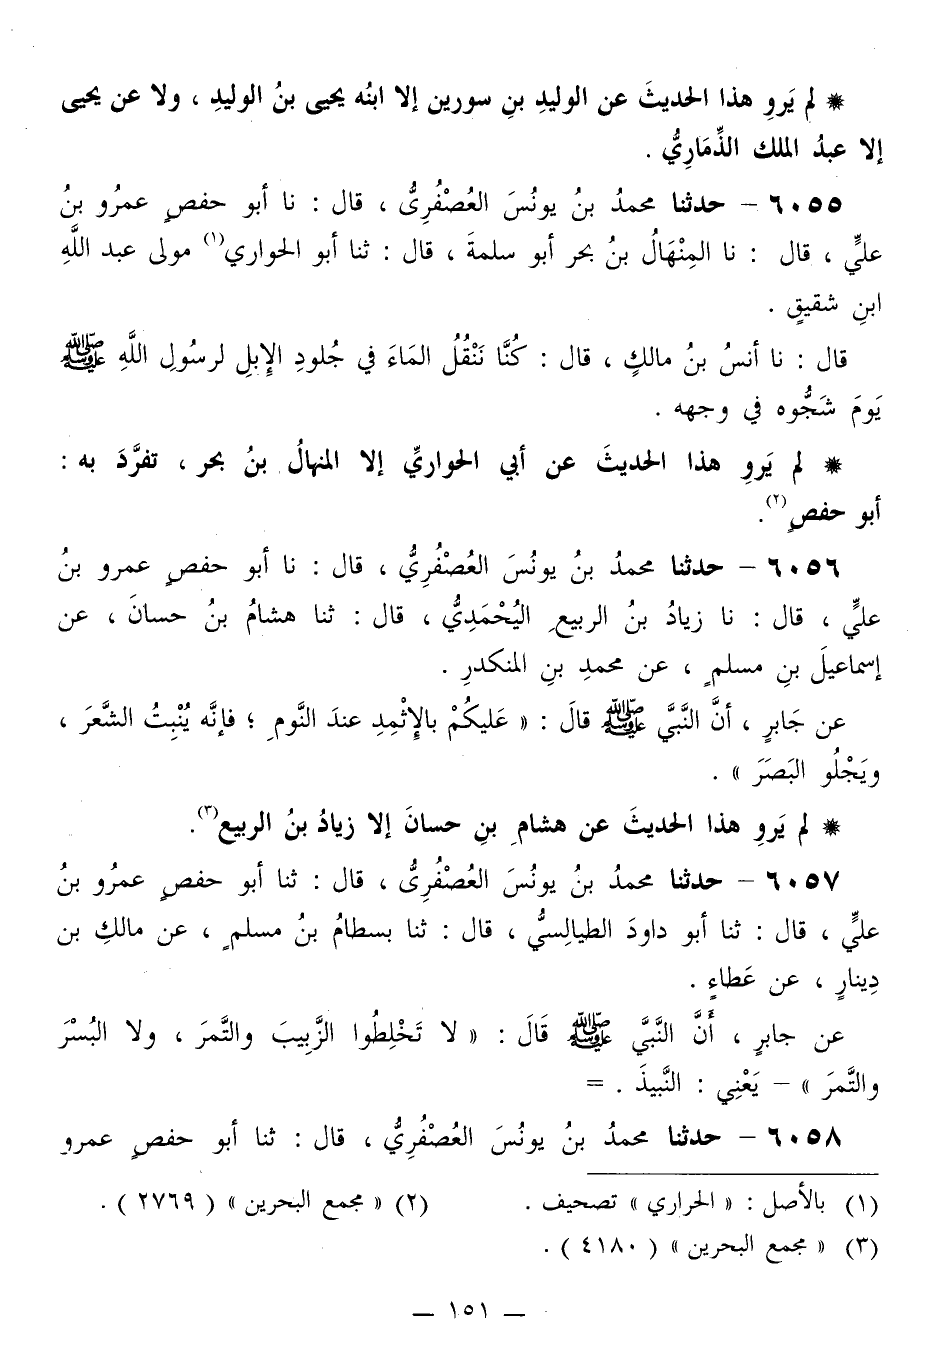 * لم يَروِ هذا الحديثَ عن الوليدِ بنِ سورين إلا ابنُه يحيى بنُ الوليدِ ، ولا عن يحيى
إلا عبدُ الملك الذِّمَارِيُّ .
٦٠٥٥ – حدثنا محمدُ بنُ يونُسَ العُصْفُرِىُّ ، قال : نا أبو حفصٍ عمرُو بنُ
عليٍّ ، قال : نا المِنْهَالُ بنُ بحر أبو سلمةَ ، قال : ثنا أبو الحواري(١) مولى عبد اللَّهِ
ابنِ شقيقٍ .
قال : نا أنسُ بنُ مالكٍ ، قال : كُنَّا نَنْقُلُ المَاءَ في جُلودِ الإِبلِ لرسُولِ اللَّهِ ﷺ
يَومَ شَجُّوه في وجهه .
* لم يَروِ هذا الحديثَ عن أبي الحواريِّ إلا المنهالُ بنُ بحر ، تفرَّدَ به :
أبو حفصٍ(٢).
٦٠٥٦ – حدثنا محمدُ بنُ يونُسَ العُصْفُرِيُّ ، قال : نا أبو حفصٍ عمرو بنُ
عليٍّ ، قال : نا زيادُ بنُ الربيعِ اليُحْمَدِيُّ ، قال : ثنا هشامُ بنُ حسانَ ، عن
إسماعيلَ بنِ مسلمٍ ، عن محمدِ بنِ المنكدرِ .
عن جَابرٍ ، أنَّ النَّبيَّ ﷺ قالَ : « عَليكُمْ بالإِثْمِدِ عندَ النَّومِ ؛ فإنَّه يُنْبِتُ الشَّعرَ ،
ويَجْلُو البَصَرَ » .
* لم يَروِ هذا الحديثَ عن هشامِ بنِ حسانَ إلا زيادُ بنُ الربيع(٣).
٦٠٥٧ – حدثنا محمدُ بنُ يونُسَ العُصْفُرِىُّ ، قال : ثنا أبو حفصٍ عمرُو بنُ
عليٍّ ، قال : ثنا أبو داودَ الطيالِسيُّ ، قال : ثنا بسطامُ بنُ مسلمٍ ، عن مالكِ بن
دِينارٍ ، عن عَطاءٍ .
عن جابرٍ ، أَنَّ النَّبيَّ ﷺ قَالَ : « لا تَخْلِطُوا الزَّبيبَ والتَّمرَ ، ولا البُسْرَ
والتَّمرَ » – يَعْنِي : النَّبيذَ . =
٦٠٥٨ – حدثنا محمدُ بنُ يونُسَ العُصْفُرِيُّ ، قال : ثنا أبو حفصٍ عمرو
(١) بالأصل : « الحراري » تصحيف . (٢) « مجمع البحرين » ( ٢٧٦٩ ) .
(٣) « مجمع البحرين » ( ٤١٨٠ ) .
— ١٥١ —